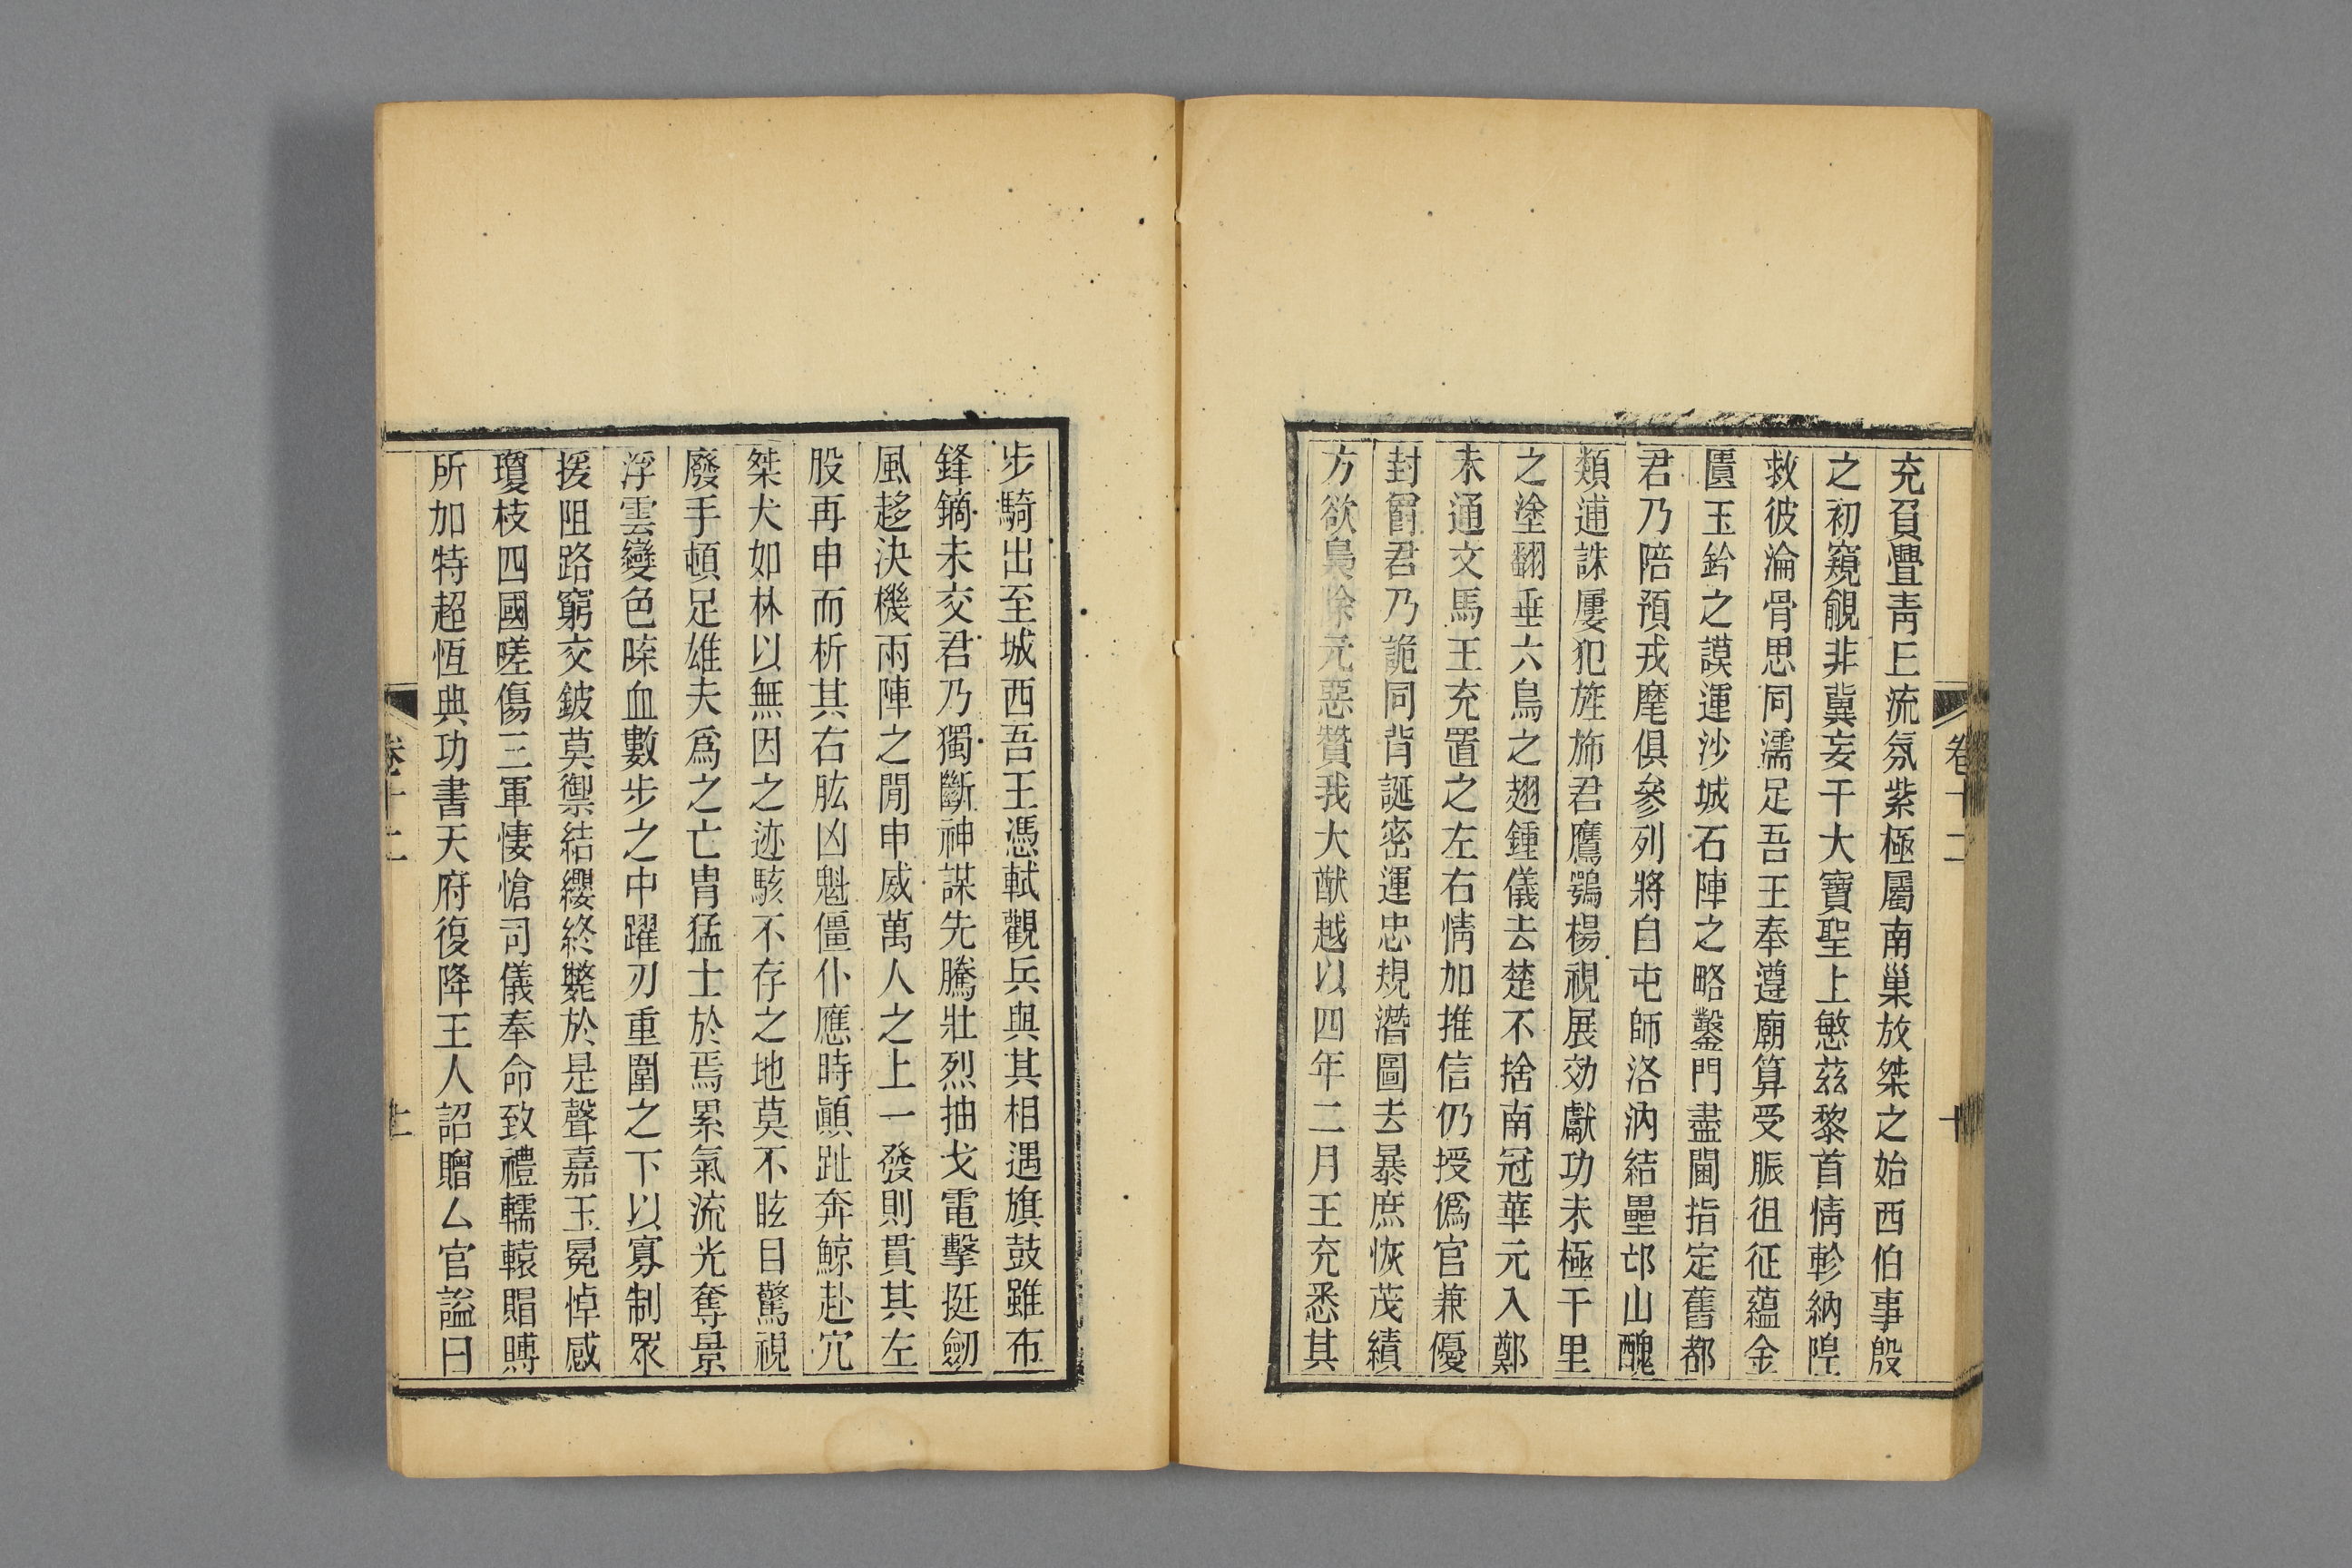 充負舋靑丘流氛紫極屬南巢放桀之始西伯事殷
之初窺覦非冀妄干大寶聖上慜茲黎首情軫納隍
救彼淪骨思同濡足吾王奉遵廟算受脤徂征蘊金
匱玉鈐之謨運沙城石陣之略鑿門盡閫指定舊都
君乃陪預戎麾俱參列將自屯師洛汭結壘邙山醜
類逋誅屢犯旌斾君鷹鶚楊視展効獻功未極千里
之塗翻垂六鳥之翅鍾儀去楚不捨南冠華元入鄭
未通文馬王充置之左右情加推信仍授僞官兼優
封爵君乃詭同背誕密運忠規潛圖去暴庶恢茂績
方欲梟除元惡贊我大猷越以四年二月王充悉其
卷十二
十
步騎出至城西吾王憑軾觀兵與其相遇旗鼓雖布
鋒鏑未交君乃獨斷神謀先騰壯烈抽戈電擊挺劒
風趍決機兩陣之閒申威萬人之上一發則貫其左
股再申而析其右肱凶魁僵仆應時顚趾奔鯨赴穴
桀犬如林以無因之迹駭不存之地莫不眩目驚視
廢手頓足雄夫爲之亡胄猛士於焉累氣流光奪景
浮雲變色喋血數步之中躍刃重圍之下以寡制眾
援阻路窮交鈹莫禦結纓終斃於是聲嘉玉冕悼感
瓊枝四國嗟傷三軍悽愴司儀奉命致禮轜轅賵賻
所加特超恆典功書天府復降王人詔贈厶官謚曰
卷十二